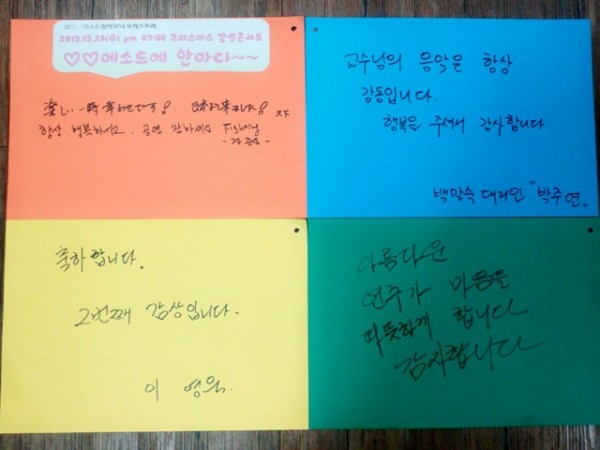 메소드앙상블 오케스트라
2015.12.23(수) pm 07:00 크리스마스 감성콘서트
♡♡메소드에 한마디~~
楽しい 一時 幸わせです! 日本より来ました!
항상 행복하시고. 공연 감사해요
교수님의 음악은 항상
감동입니다.
행복을 주셔서 감사합니다.
백말숙 대리인 "박주연"
축하합니다.
2번째 감상입니다.
이 영워
아름다운
연주가 마음을
따뜻하게 합니다
감사합니다